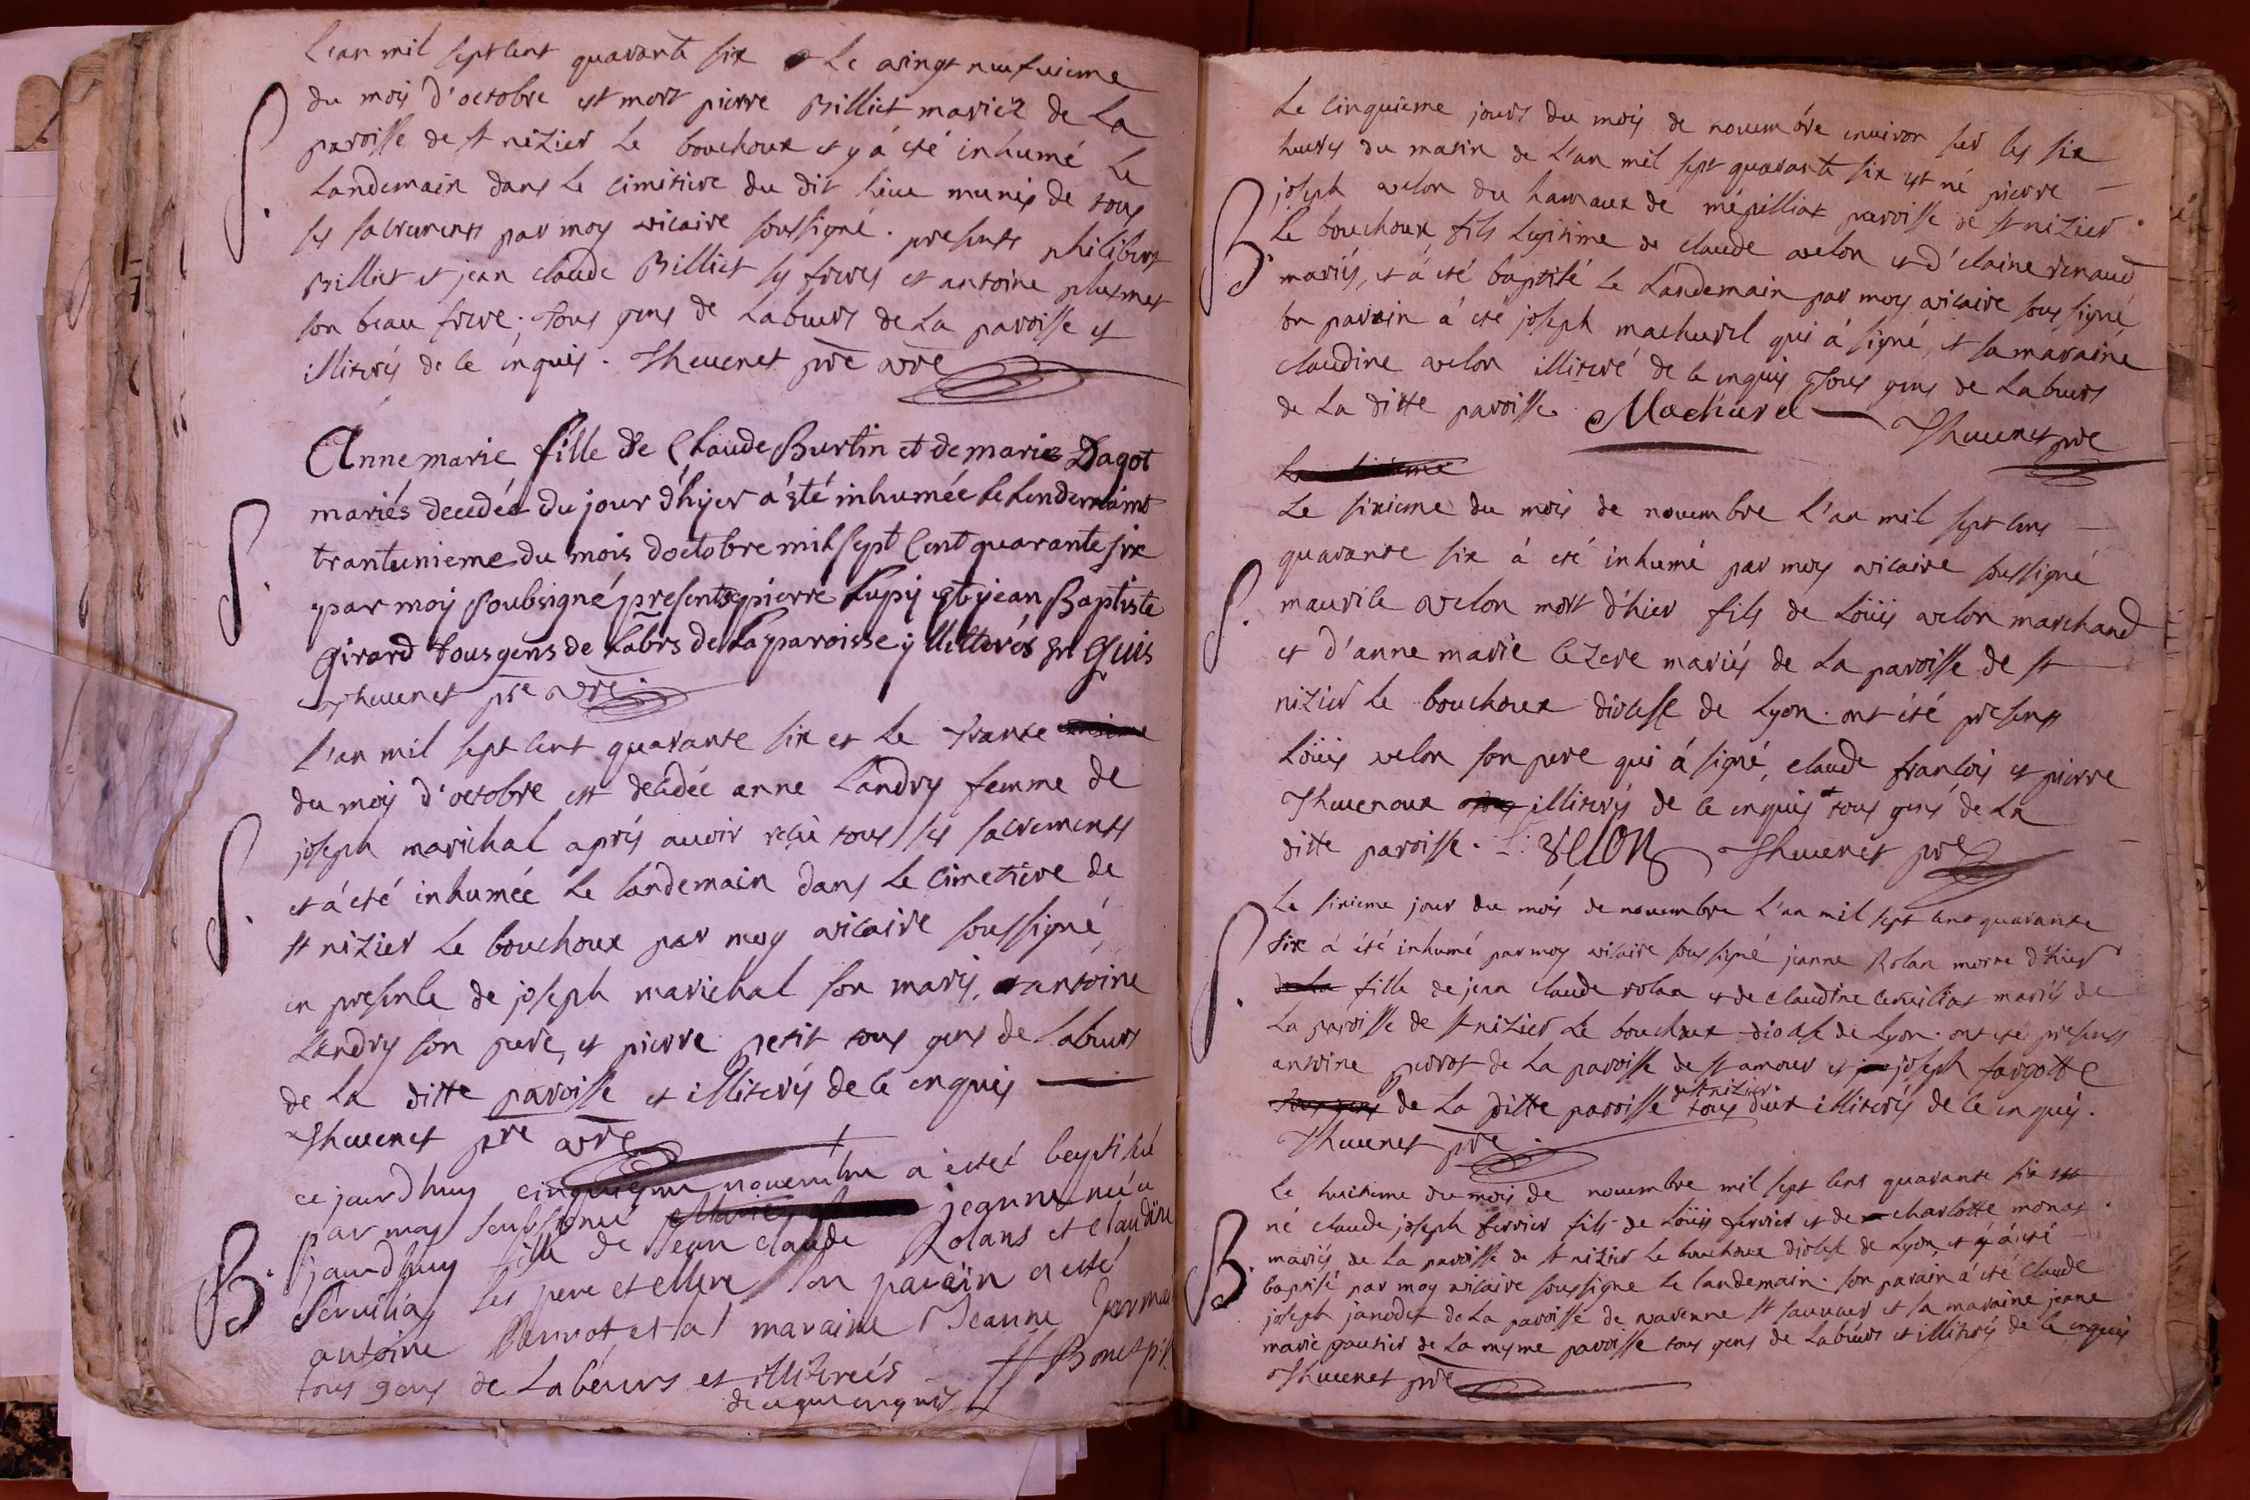 L'an mil sept cent quarante six et le vingt neufuieme
du mois d'octobre est mort pierre Billiet mariéz de La
paroisse de st nizier le bouchoux et y á eté inhumé Le
Landemain dans Le cimitiere du dit lieu munis de tous
ses sacrements par moy vicaire soussigné. presents philibert
Billiet et jean claude Billiet ses freres et antoine plusmet
son beau frere; tous gens de Labeurs de La paroisse et
illiterés de ce enquis. Theuenet pre vre
S.
Anne marie fille de Claude Burtin et de marie Dagot
mariés decedée du jour d'hyer a'sté inhumée le Lendemaint
trantunieme du mois doctobre mil sept Cent quarante six
par moy soubsigné presents pierre Lupy et jean Baptiste
Girard tous gens de Labrs de La paroisse yllitterés En Quis
Theuenet pre vre
S.
L'an mil sept cent quarante six et le trante
du moy d'octobre est decedée anne Landry femme de
joseph marichal aprés auoir reçu tous ses sacrements
et á eté inhumée Le landemain dans Le cimetiere de
st nizier Le bouchoux par moy vicaire soussigné,
en presence de joseph marichal son maris, antoine
Landry son pere, et pierre petit tous gens de Labeurs
de La ditte paroisse et illiterés de ce enquis
Theuenet pre vre
S.
ce jourdhuy cinquieme nouembre a estéé beptisé
par moy soubsigné jeanne néé a
jourdhuy fille de Jean claude Rolans et claudine
Seruilias ses pere et Mere son parain a esté
antoine Perrot et sa maraine Jeanne
tous gens de Labeurs et illiterés
de ce que enquis Bonet ptr
B.
Le cinquieme jours du mois de nouembre enuiron sur les six
heures du matin de L'an mil sept quarante six est né pierre
joseph velon du hamaux de mépilliat paroisse de st nizier
Le bouchoux, fils legitime de claude velon et d'claine renaud
mariés, et á eté baptisé Le Landemain par moy vicaire sous signé
son parain á eté joseph machurel qui á signé, et sa maraine
claudine velon illiteré de ce enquis Tous gens de Labeurs
de La ditte paroisse. Machurel Theuenet pre
B.
Le sixieme
Le sixieme du mois de nouembre L'an mil sept cens
quarante six á eté inhumé par moy vicaire soussigné
maurice velon mort d'hier fils de Loüis velon marchand
et d'anne marie cezere mariés de La paroisse de st
nizier Le bouchoux diocesse de Lyon. ont été presents
Loüis velon son pere qui á signé, claude françois et pierre
Theuenoux illiterés de ce enquis tous gens de La
ditte paroisse. velon Theuenet pre
S.
Le sixieme jour du mois de nouembre L'an mil sept cent quarante
six á été inhumé par moy vicaire sous signé jeanne Rolan morte d'hier
de La fille de jean claude rolan et de claudine ceruilias mariés de
La paroisse de st nizier Le bouchoux diocese de Lyon. ont eté presents
antoine perrot de La paroisse de st amour et joseph fargotte
tous gens de La ditte paroisse de st nizier. tous deux illiterés de ce enquis.
Theuenet pre
S.
Le huitieme du mois de nouembre mil sept cens quarante six est
né claude joseph ferrier fils de Loüis ferrier et de charlotte monet
mariés, de La paroisse de st nizier Le bouchoux diocese de Lyon, et y á eté
baptisé par moy vicaire soussigné Le landemain. son parain á eté claude
joseph janodet de La paroisse de varenne st sauueur et sa maraine jeane
marie gautier de La mesme paroisse tous gens de Labeurs et illiterés de ce enquis
Theuenet pre
B.